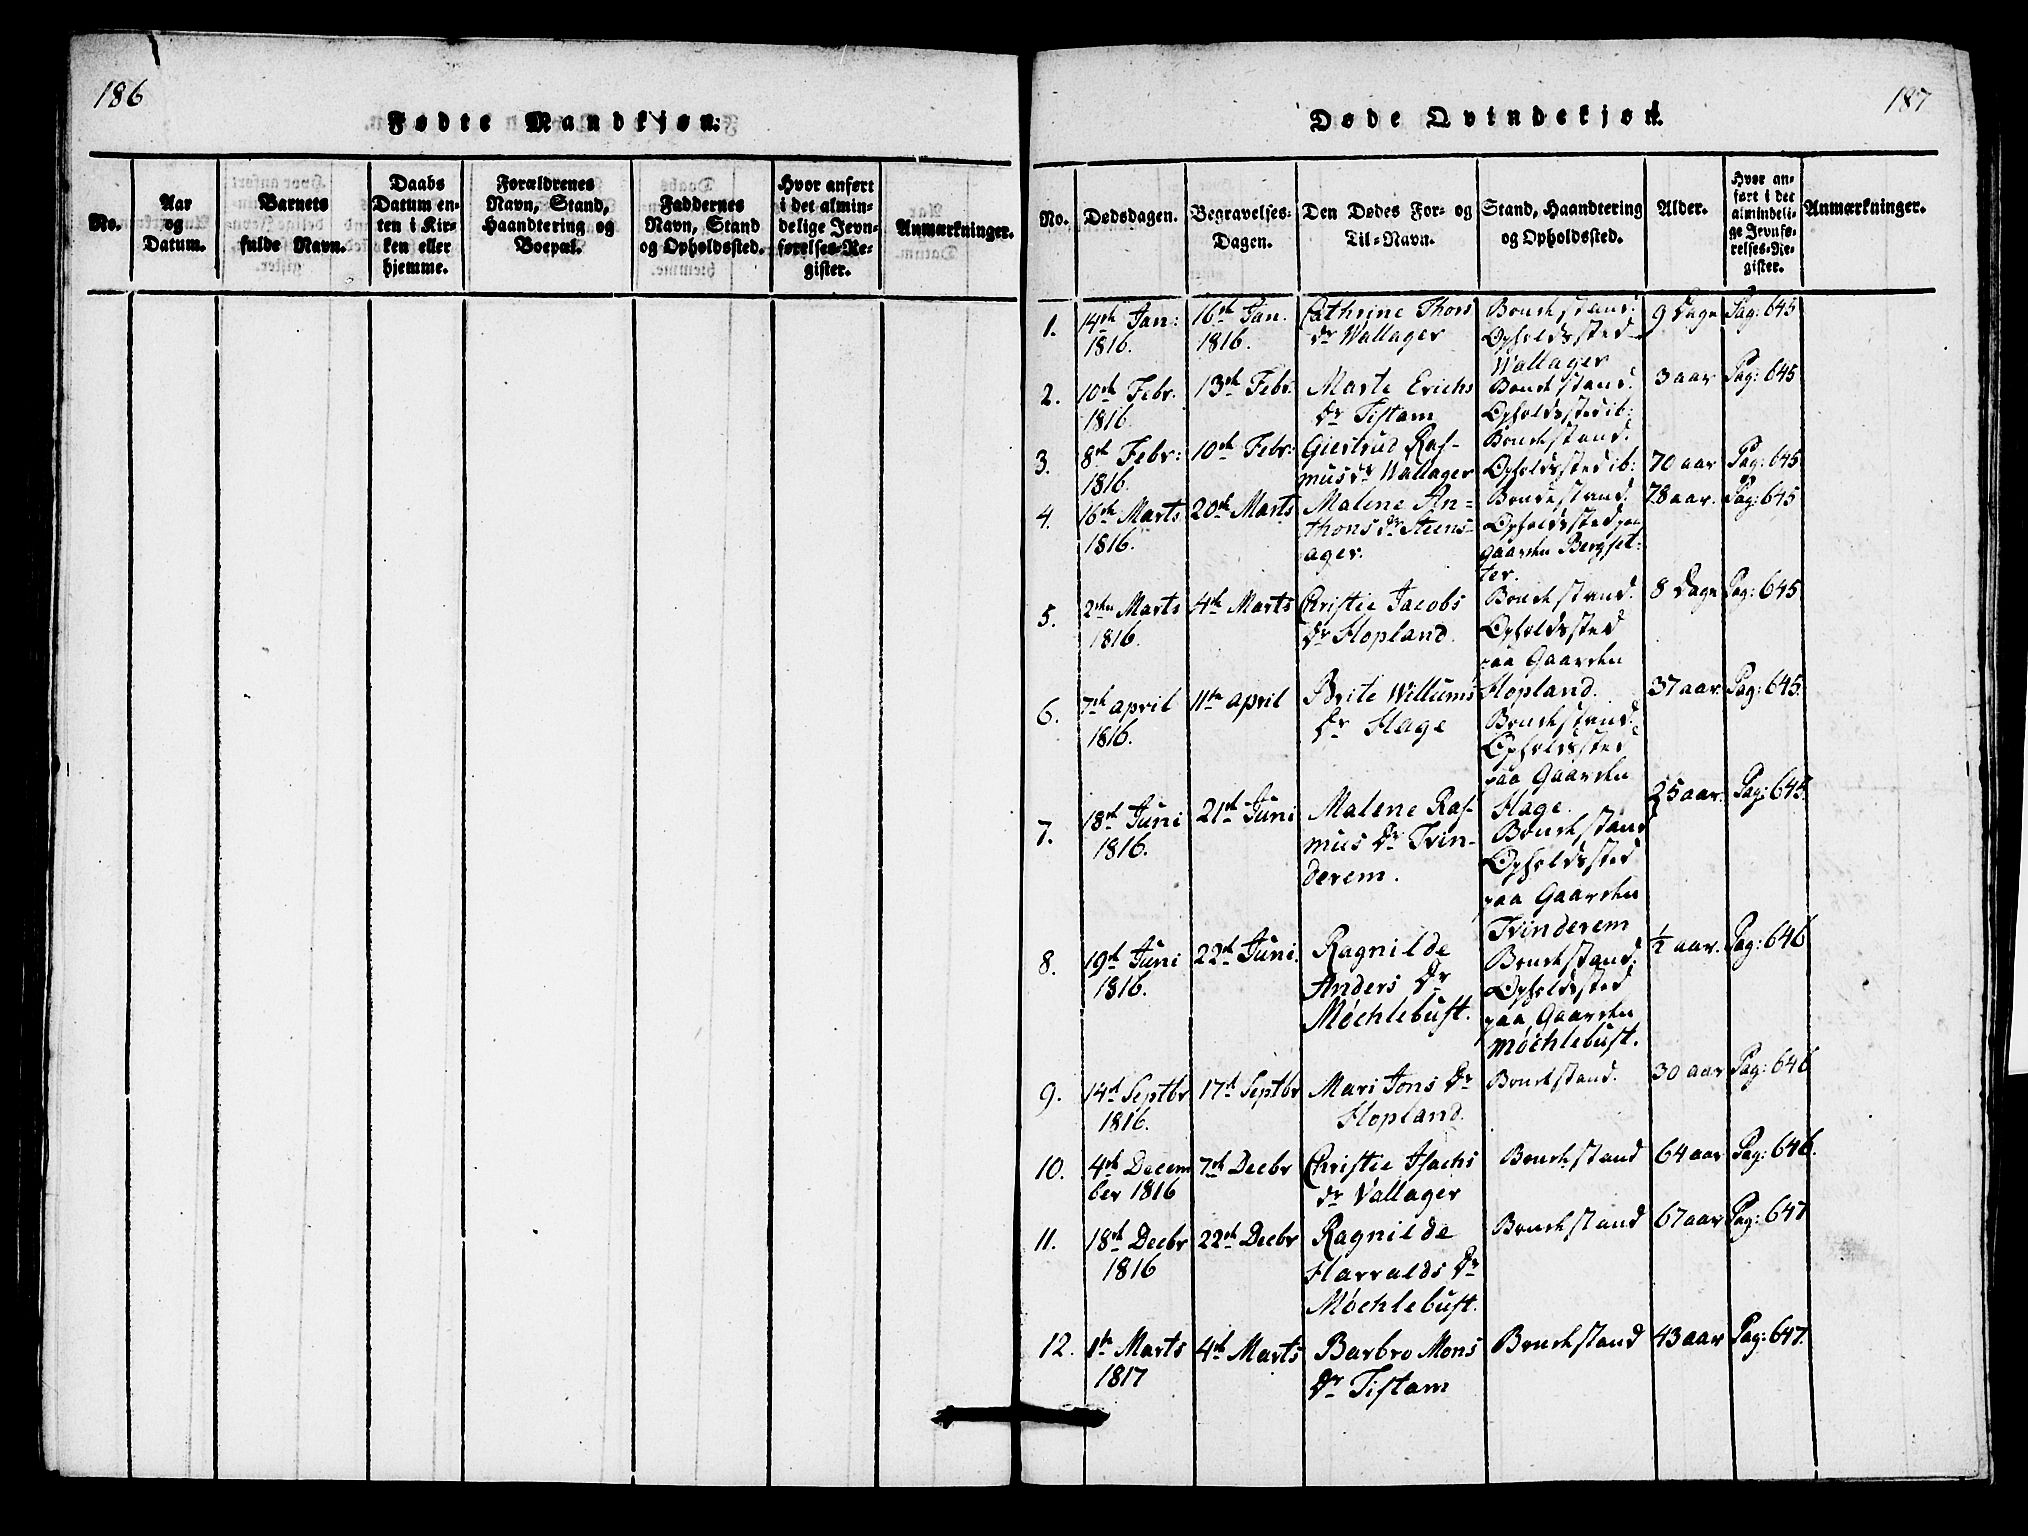 186
Fødte Mandkjøn.
No.
Aar
og
Datum.
Barnets
fulde Navn.
Daabs
Datum en-
ten i Kir-
ken eller
hjemme.
Forældrenes
Navn, Stand,
Haandtering og
Boepæl.
Faddernes
Navn, Stand
og Opholdssted.
Hvor anført
i det almin-
delige Jevn-
førelses-Re-
gister.
Anmærkninger.
187
Døde Qvindekjøn.
No.
Dødsdagen.
Begravelses-
Dagen.
Den Dødes For- og
Til-Navn.
Stand, Haandtering
og Opholdssted.
Alder.
Hvor an-
ført i det
almindeli-
ge Jevnfø-
relses-Re-
gister.
Anmærkninger.
1.
14de Jan:
1816.
16de Jan.
1816.
Cathrine Thors
Dr Wallager
Bondestand.
Opholdssted
Wallager
9 Dage
Pag: 645
2.
10de Febr.
1816.
13de Febr.
Marte Erichs
Dr Tistam
Bondestand.
Opholdssted ib:
3 aar
Pag: 645
3.
8de Febr:
1816.
10de Febr:
Giertrud Ras-
mus Dr Wallager
Bondestand.
Opholdssted ib:
70 aar
Pag: 645
4.
16de Marts
1816.
20de Marts
Malene An-
thons Dr Steens-
ager.
Bondestand.
Opholdssted paa
Gaarden Bergset-
ter.
78 aar.
Pag: 645
5.
2den Marts
1816.
4de Marts
Christie Jacobs
Dr Hopland.
Bondestand.
Opholdssted
paa Gaarden
Hopland.
8 Dage
Pag: 645
6.
7de april
1816.
11te april
Brite Willums
Dr Hage
Bondestand.
Opholdssted
paa Gaarden
Hage.
37 aar.
Pag: 645.
7.
18de Juni
1816.
21de Juni
Malene Ras-
mus Dr Tvin-
derem.
Bondestand
Opholdssted
paa Gaarden
Tvinderem
25 aar.
Pag: 645.
8.
19de Juni
1816.
22de Juni.
Ragnilde
Anders Dr
Møchlebust.
Bondestand.
Opholdssted
paa Gaarden
Møchlebust.
½ aar.
Pag: 646
9.
14de Septbr
1816.
17de Septbr
Mari Jons Dr
Hopland.
Bondestand.
30 aar
Pag: 646
10.
4de Decem
ber 1816
7de Decbr
Christie Isachs
Dr Vallager
Bondestand
64 aar
Pag: 646.
11.
18de Decbr
1816
22de Decbr
Ragnilde
Harralds Dr
Møchlebust.
Bondestand
67 aar
Pag: 647
12.
1te Marts
1817
4de Marts
Barbro Mons
Dr Tistam
Bondestand
43 aar
Pag: 647.